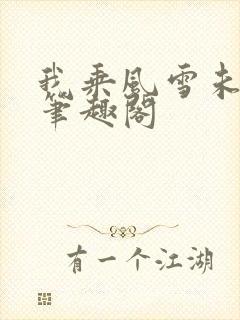 我乘风雪未
笔趣阁
有一个江湖